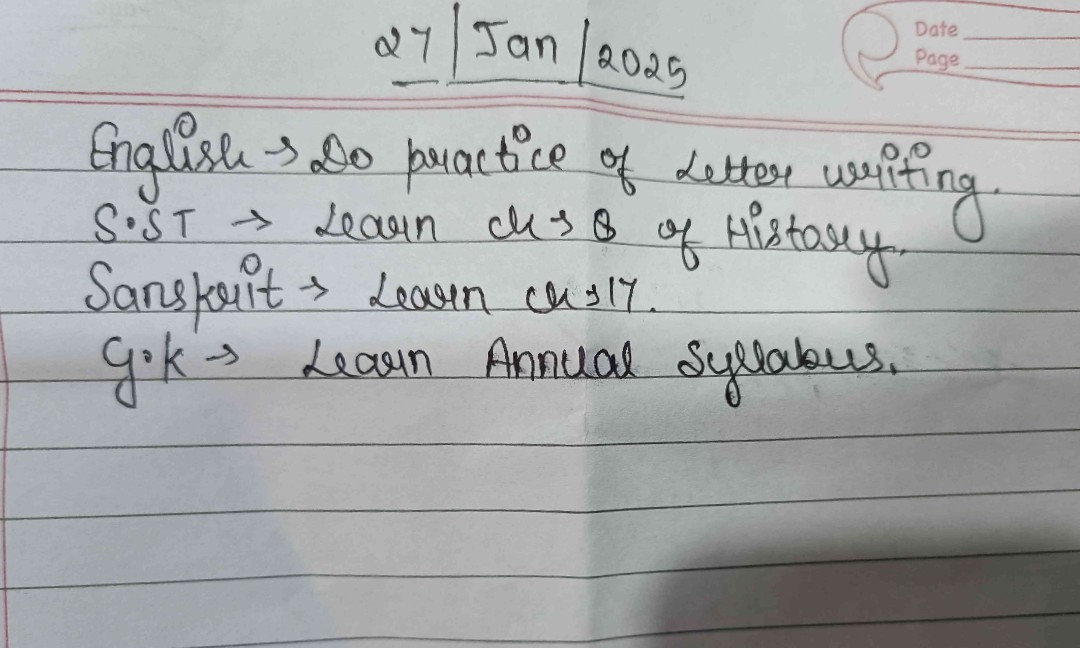 Date
Page
27/Jan/2025
English → Do practice of Letter writing.
S.ST → Learn ch → 8 of History.
Sanskrit → Learn ch → 17.
G.k → Learn Annual Syllabus.